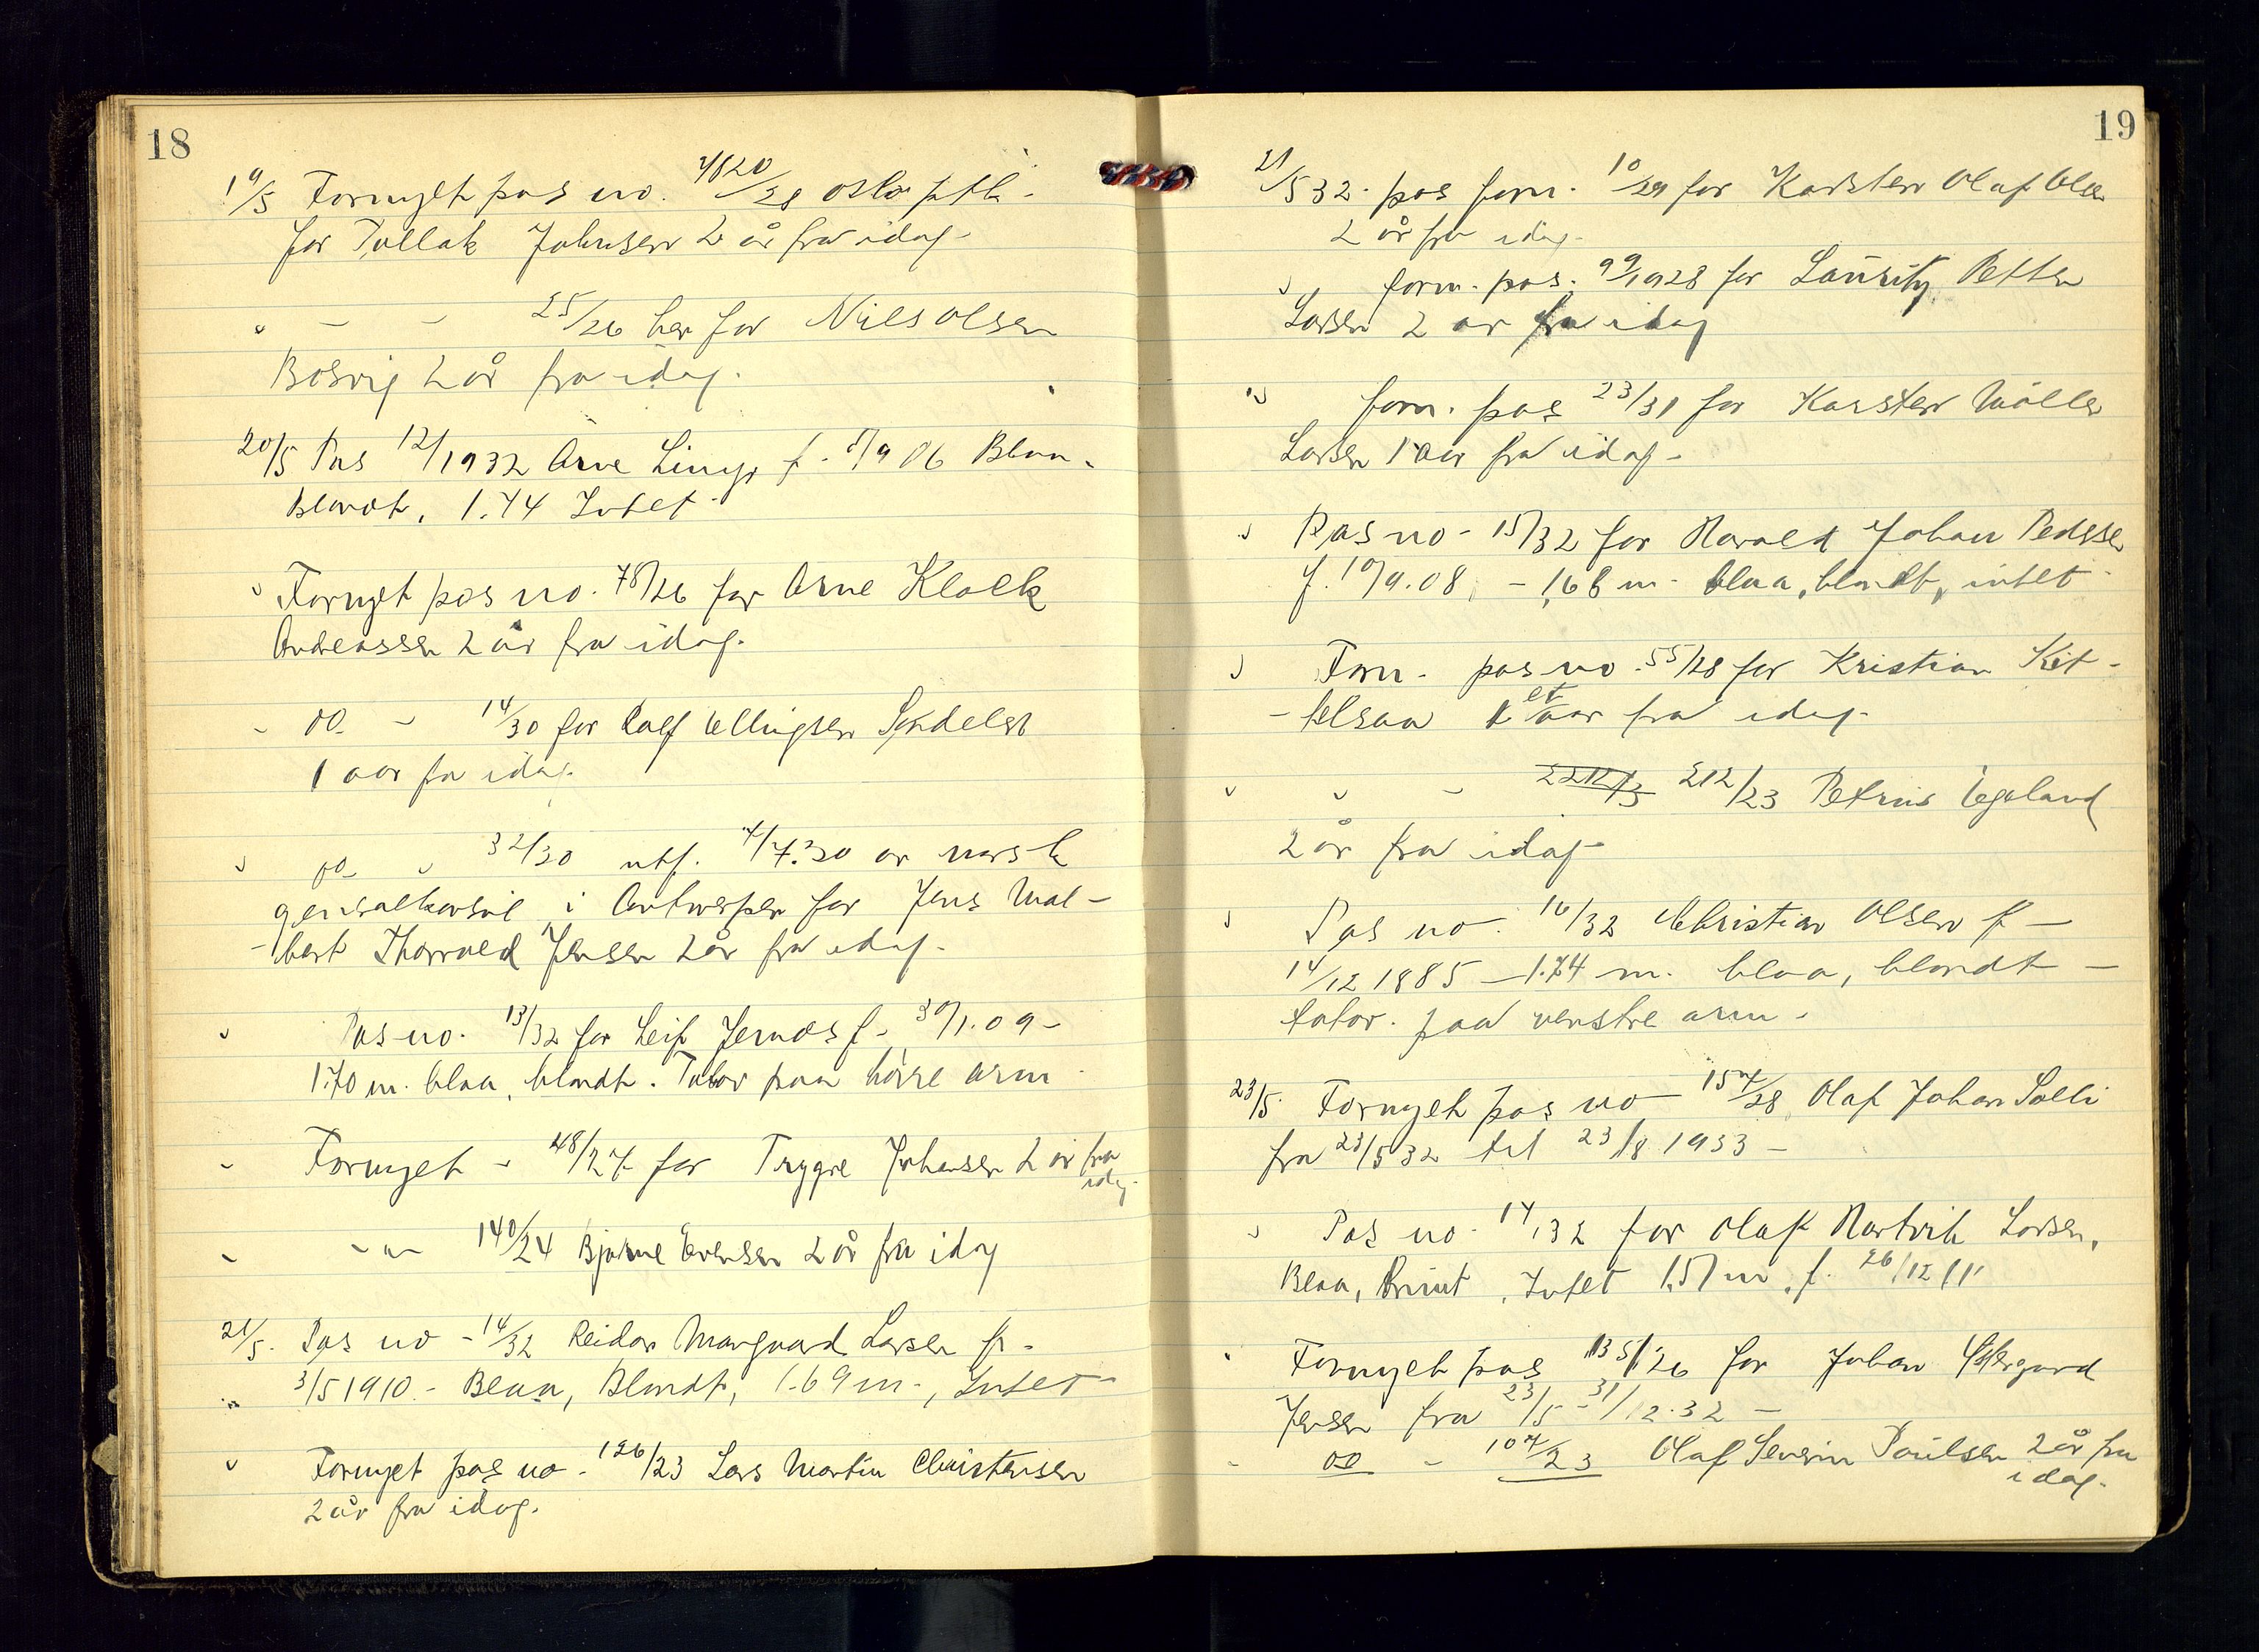 18
19/5 Fornyet pas no. 4820/28 Oslo ptk.
for Tollak Johnsen 2 år fra idag.
" - - 25/26 her for Nils Olsen
Bosvig 2 år fra idag.
20/5 Pas 12/1932 Arne f. 9 06 Blaa.
Blondt, 1.74 Intet
" Fornyet pas no. 78/26 for Arne Klock
Andreassen 2 år fra idag.
- do - 14/30 for Ralf Ellingsen Søndeled
1 aar fra idag.
" do " 32/30 utf. 7/7.30 av norsk
generalkonsul i Antwerpen for Jens Wal-
-bert Thorvald Jensen 2 år fra idag.
" Pas no. 13/32 for Leif Jernæs f. 30/1.09 -
1.70 m. blaa, blondt. Tatov paa høire arm
- Fornyet - 48/27 for Trygve Johansen 2 år fra
idag.
- - " - 140/24 Bjarne Evensen 2 år fra idag
21/5. Pas no - 14/32 Reidar Margnard Larsen f.
" 3/5 1910. - Blaa, Blondt, 1.69 m., Intet -
" Fornyet pas no - 126/23 Lars Martin Christensen
2 år fra idag.
19
21/5 32. pas forn. 10/29 for Karsten Olaf Olsen
2 år fra idag.
" forn. pas. 99/1928 for Lauritz Petter
Larsen 2 aar fra idag
" forn. pas 23/31 for Karsten Møller
Larsen 1 aar fra idag -
" Pas no - 15/32 for Harald Johan Pedersen
f. 10/9.08 - 1,68 m - blaa, blondt, intet
" Forn. pas no. 55/28 for Kristian Kit-
-telsaa et aar fra idag.
" " - 2212/3 212/23 Petrus Egeland
2 år fra idag -
" Pas no. 16/32 Christian Olsen f -
14/12 1885 - 1.74 m. blaa, blondt -
tatov. paa venstre arm -
23/5. Fornyet pas no 157/28 Olaf Johan Solli
fra 23/5 32 til 23/8 1933 -
" Pas no - 17/32 for Olaf Hartvik Larsen,
Blaa, Brunt, Intet 1,57 m, f. 26/12 11
" Fornyet pas 135/26 for Johan Østergaard
Jensen fra 23/5 - 31/12.32 -
- do - 107/23 Olaf Severin Poulsen 2 år fra
idag.